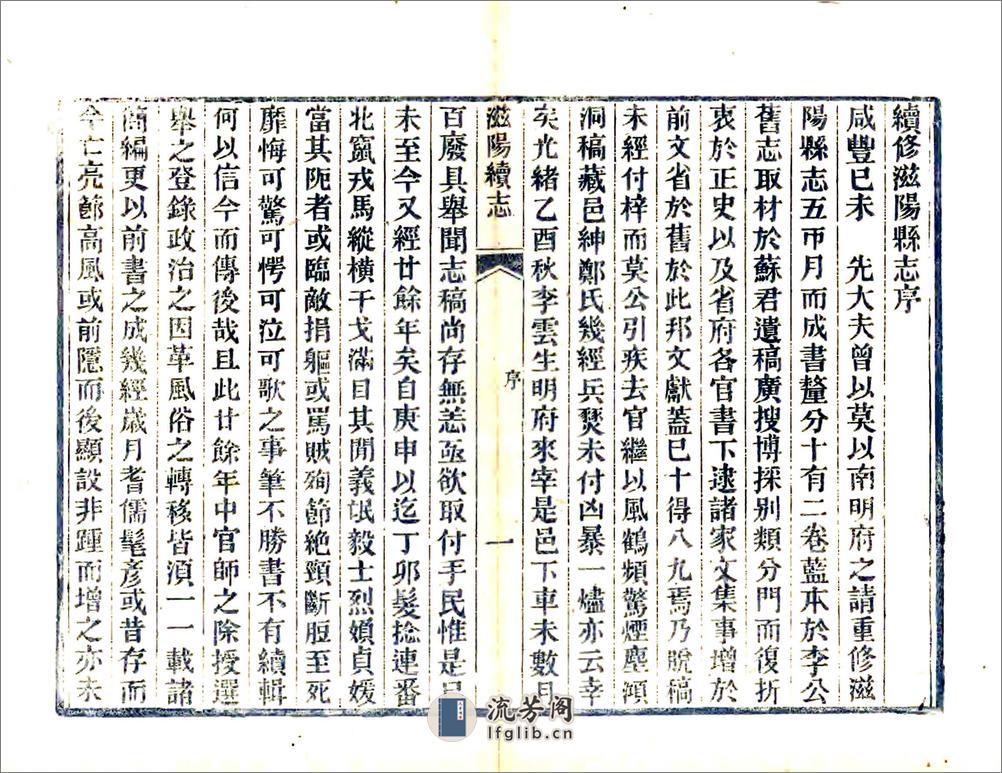 續修滋陽縣志序
咸豐已未　先大夫曾以莫以南明府之請重修滋
陽縣志五帀月而成書釐分十有二卷藍本於李公
舊志取材於蘇君遺稿廣搜博採别類分門而復折
衷於正史以及省府各官書下逮諸家文集事增於
前文省於舊於此邦文獻蓋已十得八九焉乃脫稿
未經付梓而莫公引疾去官繼以風鶴頻驚煙塵澒
洞稿藏邑紳鄭氏幾經兵燹未付凶暴一燼亦云幸
矣光緒乙酉秋李雲生明府來宰是邑下車未數月
滋陽續志
序
一
百廢具舉聞志稿尚存無恙亟欲取付手民惟是己
未至今又經廿餘年矣自庚申以迄丁卯髮捻連番
北竄戎馬縱橫干戈滿目其閒義氓毅士烈媍貞媛
當其阨者或臨敵捐軀或罵賊殉節絶頸斷脰至死
靡悔可驚可愕可泣可歌之事筆不勝書不有續輯
何以信今而傳後哉且此廿餘年中官師之除授選
舉之登錄政治之因革風俗之轉移皆須一一載諸
簡編更以前書之成幾經歲月耆儒髦彥或昔存而
今亡亮節高風或前隱而後顯設非踵而增之亦未
流芳阁
lfglib.cn